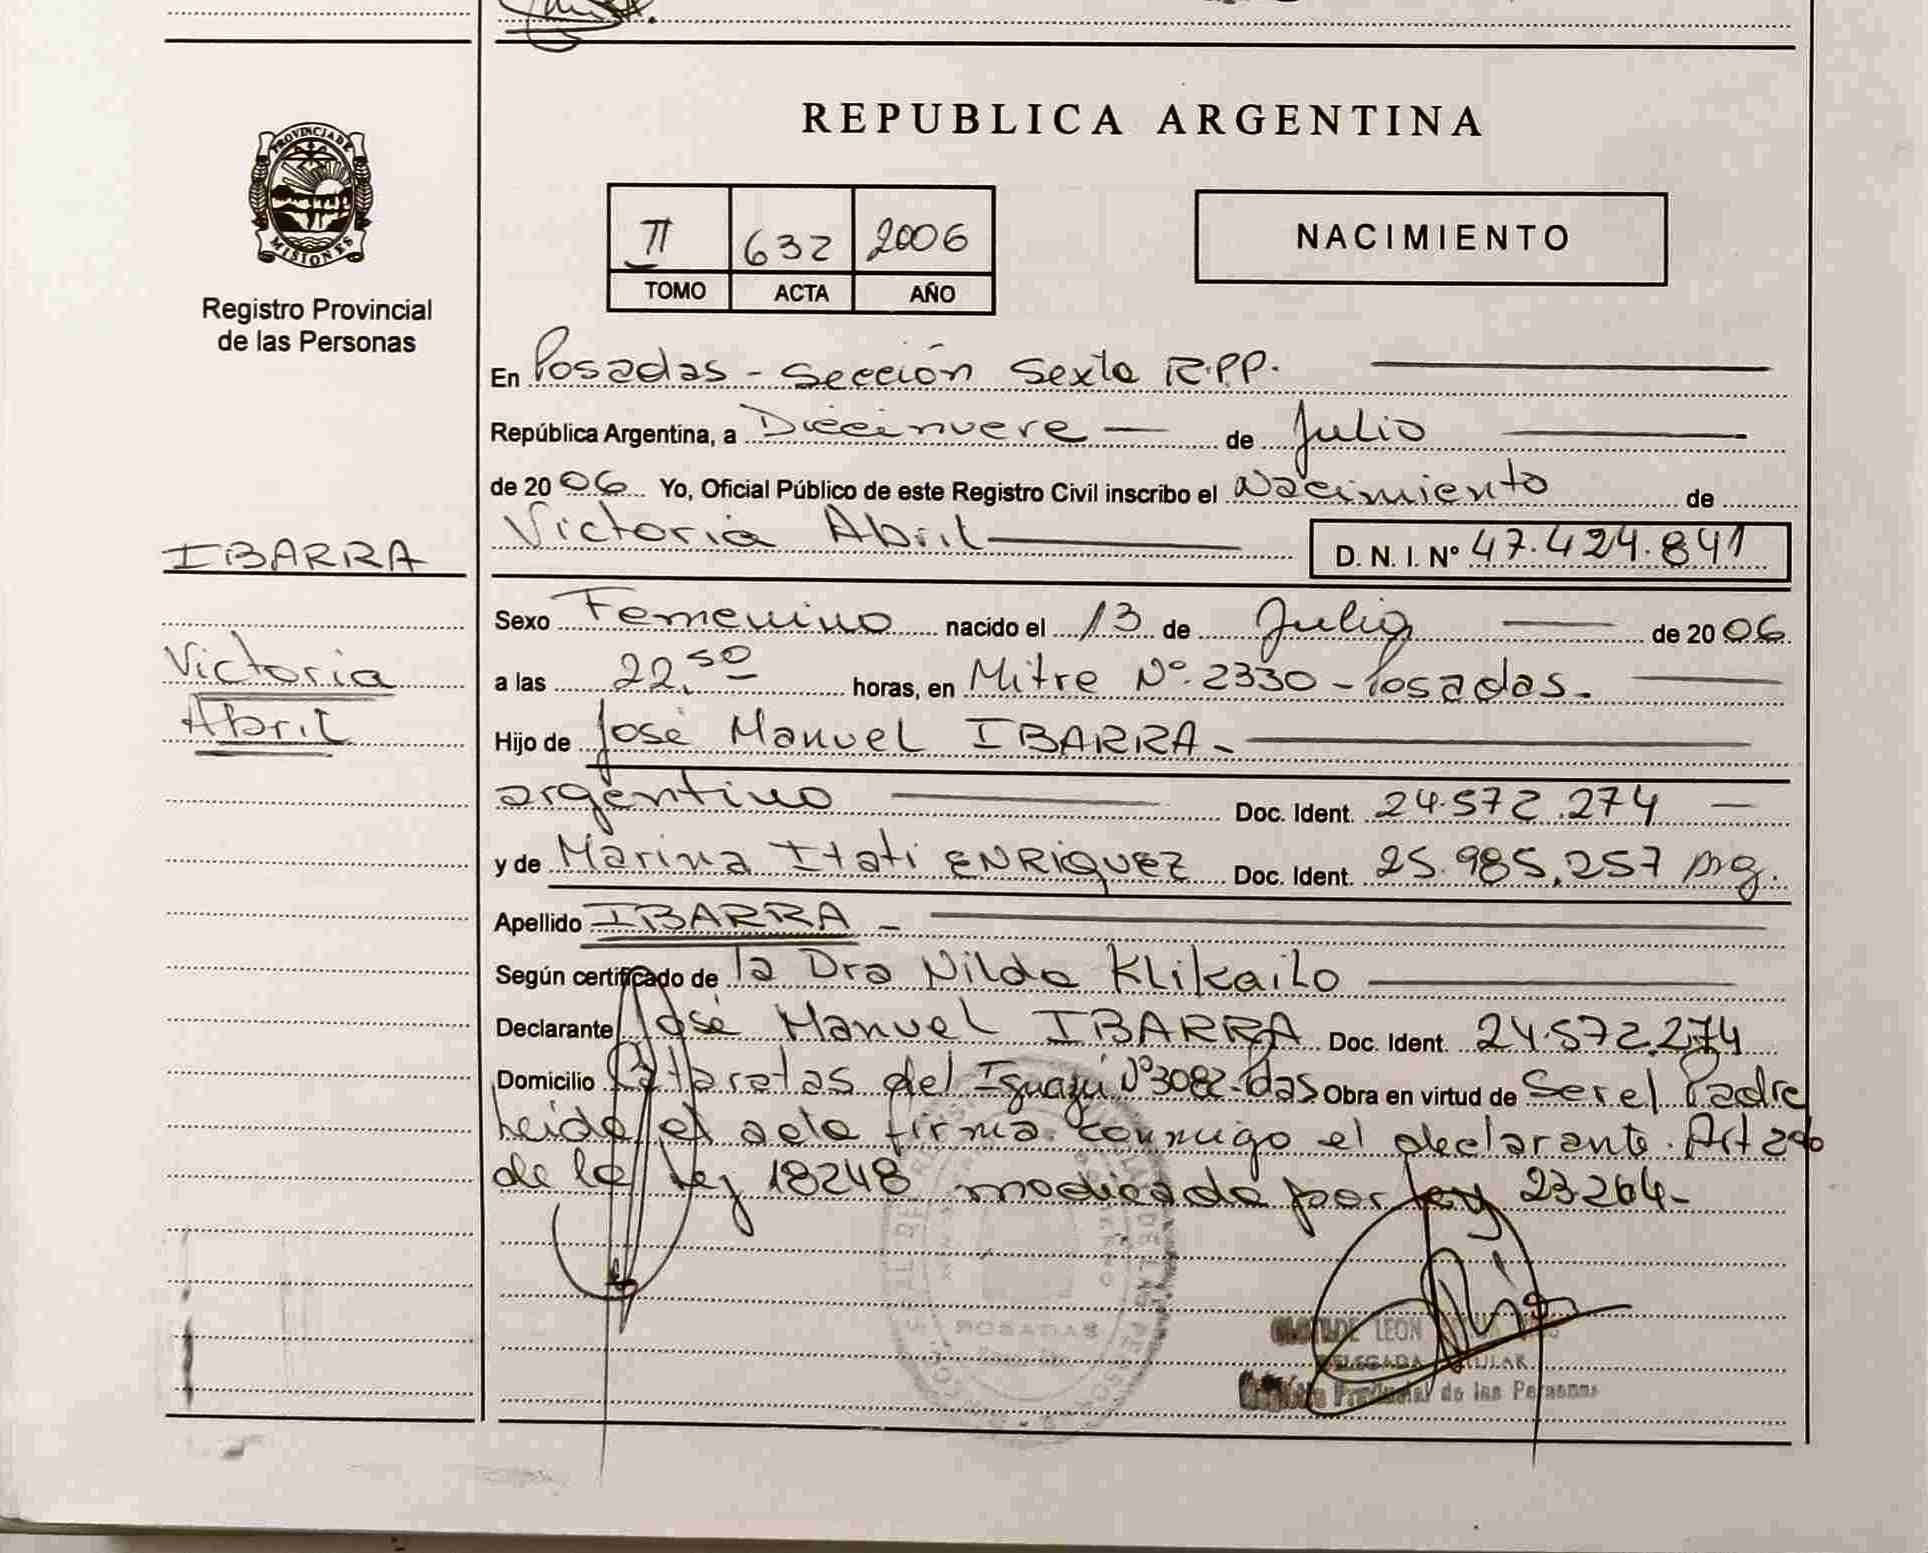 REPUBLICA ARGENTINA
PROVINCIA DE
MISIONES
Registro Provincial
de las Personas
II 632 2006
TOMO ACTA AÑO
NACIMIENTO
En Posadas - Sección Sexta R.P.P.
República Argentina, a Diecinueve de Julio
de 2006 Yo, Oficial Público de este Registro Civil inscribo el Nacimiento de
Victoria Abril D. N. I. Nº 47.424.841
IBARRA
Victoria
Abril
Sexo Femenino nacido el 13 de Julio de 2006
a las 22,50 horas, en Mitre Nº. 2330 - Posadas.
Hijo de José Manuel IBARRA
argentino Doc. Ident. 24.572.274
y de Marina Itati ENRIQUEZ Doc. Ident. 25.985.257 Arg.
Apellido IBARRA
Según certificado de la Dra Nilda Klikailo
Declarante José Manuel IBARRA Doc. Ident. 24.572.274
Domicilio Cataratas del Iguazú Nº3082-Pdas Obra en virtud de Ser el Padre
Leida el acta firma conmigo el declarante. Art 2do
de la Ley 18248 modicada por ley 23.264-
POSADAS
LEON
DELEGADA TITULAR
Provincial de las Personas